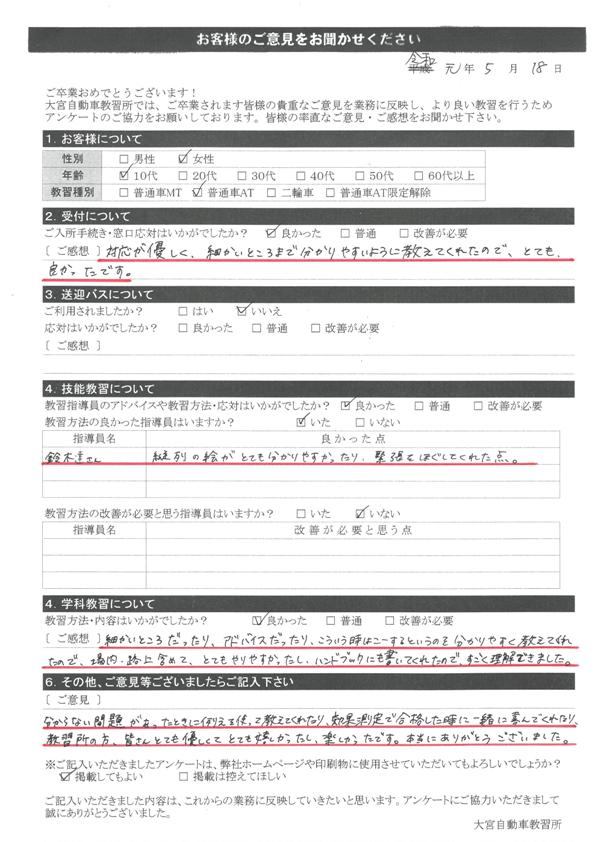 お客様のご意見をお聞かせください
令和
平成 元年 5月 18日
ご卒業おめでとうございます！
大宮自動車教習所では、ご卒業されます皆様の貴重なご意見を業務に反映し、より良い教習を行うため
アンケートのご協力をお願いしております。皆様の率直なご意見・ご感想をお聞かせ下さい。
1. お客様について
性別 □ 男性 ☑ 女性
年齢 ☑ 10代 □ 20代 □ 30代 □ 40代 □ 50代 □ 60代以上
教習種別 □ 普通車MT ☑ 普通車AT □ 二輪車 □ 普通車AT限定解除
2. 受付について
ご入所手続き・窓口応対はいかがでしたか？ ☑ 良かった □ 普通 □ 改善が必要
［ ご感想 ］対応が優しく、細かいところまで分かりやすいように教えてくれたので、とても
良かったです。
3. 送迎バスについて
ご利用されましたか？ □ はい ☑ いいえ
応対はいかがでしたか？ □ 良かった □ 普通 □ 改善が必要
［ ご感想 ］
4. 技能教習について
教習指導員のアドバイスや教習方法・応対はいかがでしたか？ ☑ 良かった □ 普通 □ 改善が必要
教習方法の良かった指導員はいますか？ ☑ いた □ いない
指導員名 良かった点
鈴木達さん 縦列の絵がとても分かりやすかったり、緊張をほぐしてくれた点。
教習方法の改善が必要と思う指導員はいますか？ □ いた ☑ いない
指導員名 改善が必要と思う点
4. 学科教習について
教習方法・内容はいかがでしたか？ ☑ 良かった □ 普通 □ 改善が必要
［ ご感想 ］細かいところだったり、アドバイスだったり、こういう時はこーするというのを分かりやすく教えてくれ
たので、場内・路上含めて、とてもやりやすかったし、ハンドブックにも書いてくれたので、すごく理解できました。
6. その他、ご意見等ございましたらご記入下さい
［ ご意見 ］
分からない問題があったときに例えを使って教えてくれたり、効果測定で合格した時に一緒に喜んでくれたり、
教習所の方、皆さんとても優しくてとても嬉しかったし、楽しかったです。本当にありがとうございました。
※ご記入いただきましたアンケートは、弊社ホームページや印刷物に使用させていただいてもよろしいでしょうか？
☑ 掲載してもよい □ 掲載は控えてほしい
ご記入いただきました内容は、これからの業務に反映していきたいと思います。アンケートにご協力いただきまして
誠にありがとうございました。
大宮自動車教習所